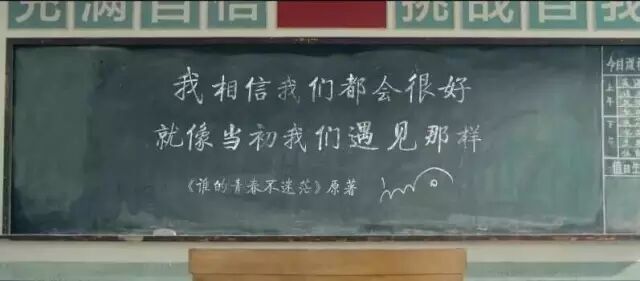 充满自信 挑战自我
我相信我们都会很好
就像当初我们遇见那样
《谁的青春不迷茫》原著
今日课
上午
下午
值日生